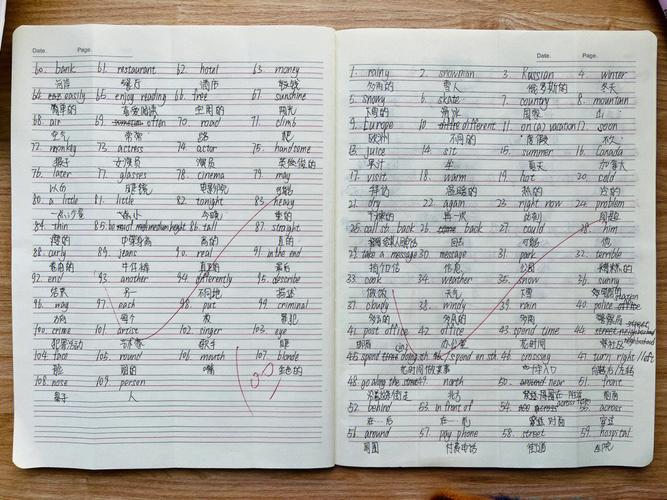 Date. Page.
60. bank 61. restaurant 62. hotel 63. money
银行 餐厅 酒店 金钱
64. easily 65. enjoy reading 66. free 67. sunshine
简单的 喜爱阅读 空闲的 阳光
68. air 69. often 70. road 71. climb
空气 常常 路 爬
72. monkey 73. actress 74. actor 75. handsome
猴子 女演员 演员 英俊的
76. later 77. glasses 78. cinema 79. may
以后 眼镜 电影院 可能
80. a little 81. little 82. tonight 83. heavy
一点 小 今晚 重的
84. thin 85. be of medium height 86. tall 87. straight
瘦的 中等身高 高的 直的
88. curly 89. jeans 90. real 91. in the end
卷曲的 牛仔裤 真正的 最后
92. end 93. another 94. differently 95. describe
结束 另一 不同地 描述
96. way 97. each 98. put 99. criminal
方向 每个 放 罪犯
100. crime 101. artist 102. singer 103. eye
犯罪活动 艺术家 歌手 眼
104. face 105. round 106. mouth 107. blonde
脸 圆的 嘴 金色的
108. nose 109. persen
鼻子 人
100
Date. Page.
1. rainy 2. snowman 3. Russian 4. winter
多雨的 雪人 俄罗斯的 冬天
5. snowy 6. skate 7. country 8. mountain
下雪的 滑冰 国家 山
9. Europe 10. different 11. on (a) vacation 12. soon
欧洲 不同的 度假 不久
13. juice 14. sit 15. summer 16. Canada
果汁 坐 夏天 加拿大
17. visit 18. warm 19. hot 20. cold
拜访 温暖的 热的 冷的
21. dry 22. again 23. right now 24. problem
干燥的 再一次 此刻 问题
25. call sb. back 26. back 27. could 28. him
回电话 回去 可能 他
29. take a message 30. message 31. park 32. terrible
捎个口信 信息 公园 糟糕的
33. cook 34. weather 35. snow 36. sunny
做饭 天气 下雪
37. cloudy 38. windy 39. rain 40. police station
多云的 多风的 多雨 警察局
41. post office 42. office 43. spend time 44. street neighborhood
邮局 办公室 花时间 街社区
45. spend time (in) doing sth. spend on sth 46. crossing 47. turn right/left
花时间做某事 十字路口 向右/左转
48. go along the street 49. north 50. near 51. front
沿着这条街走 北方 在附近 前面
52. behind 53. in front of 54. across from 55. across
在…后 在…前 在对面 穿过
56. around 57. pay phone 58. street 59. hospital
周围 付费电话 街道 医院